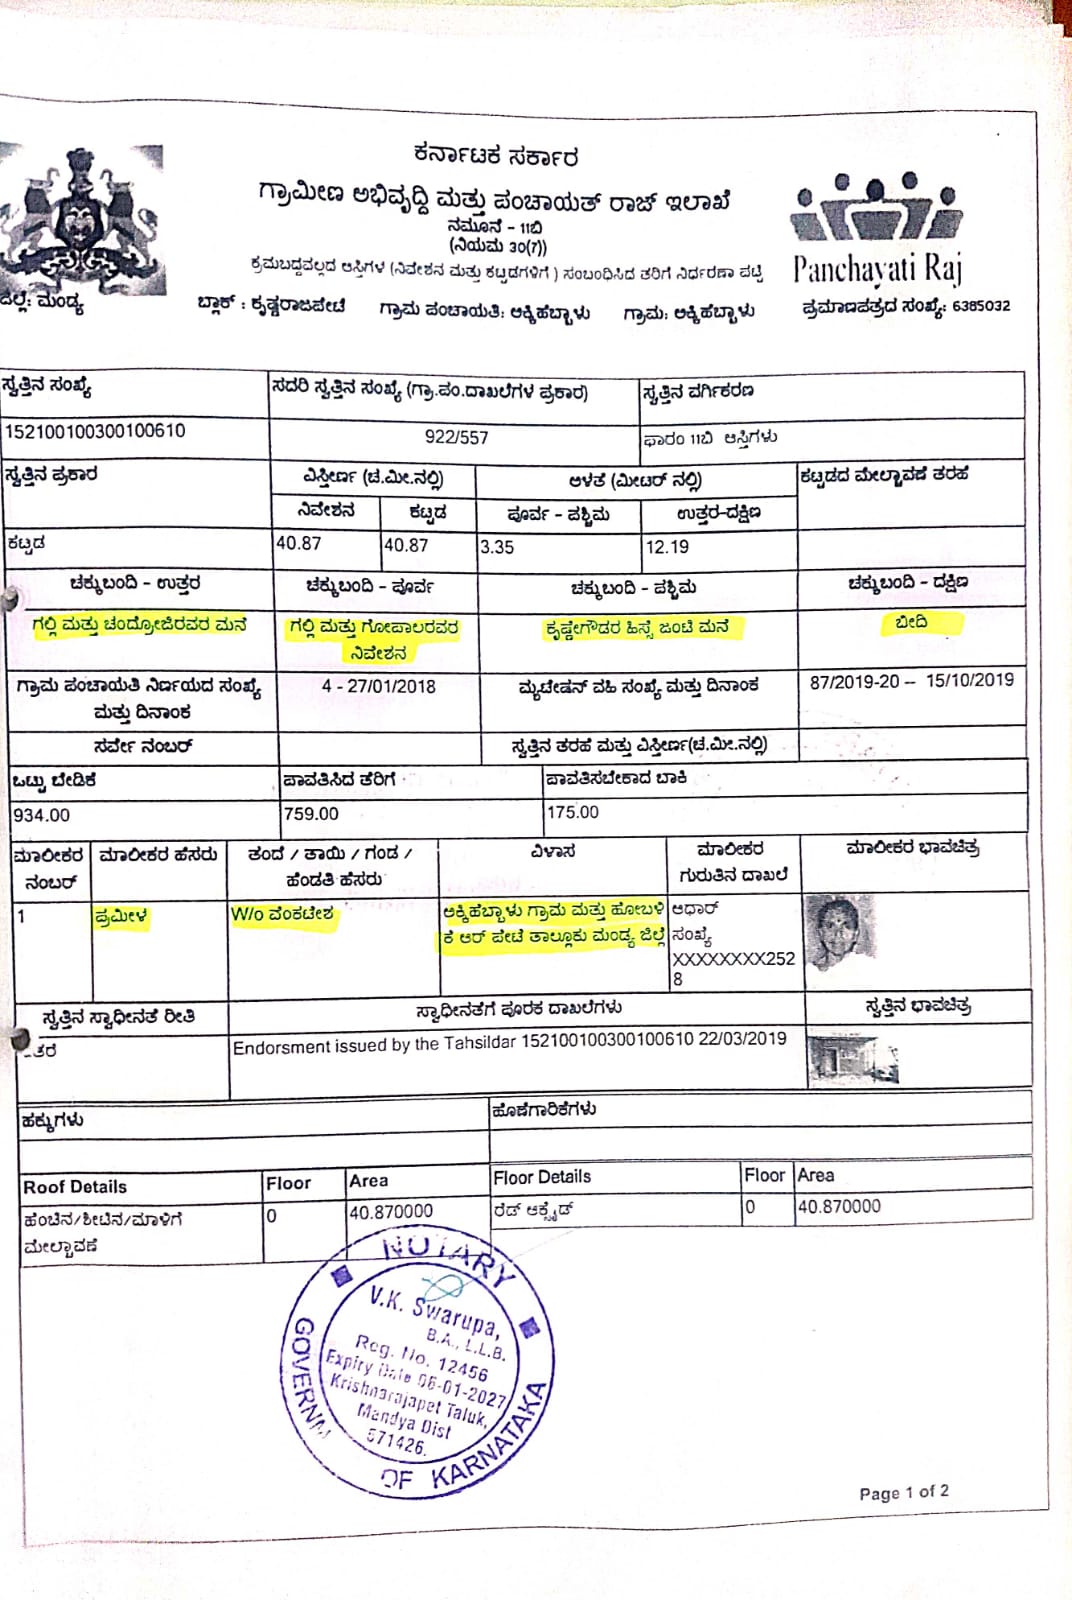 ಕರ್ನಾಟಕ ಸರ್ಕಾರ
ಗ್ರಾಮೀಣ ಅಭಿವೃದ್ಧಿ ಮತ್ತು ಪಂಚಾಯತ್ ರಾಜ್ ಇಲಾಖೆ
ನಮೂನೆ - 11ಬಿ
(ನಿಯಮ 30(7))
ಕ್ರಮಬದ್ದವಲ್ಲದ ಆಸ್ತಿಗಳ (ನಿವೇಶನ ಮತ್ತು ಕಟ್ಟಡಗಳಿಗೆ) ಸಂಬಂಧಿಸಿದ ತೆರಿಗೆ ನಿರ್ಧರಣಾ ಪಟ್ಟಿ
Panchayati Raj
ಜಿಲ್ಲೆ: ಮಂಡ್ಯ ಬ್ಲಾಕ್ : ಕೃಷ್ಣರಾಜಪೇಟೆ ಗ್ರಾಮ ಪಂಚಾಯತಿ: ಅಕ್ಕಿಹೆಬ್ಬಾಳು ಗ್ರಾಮ: ಅಕ್ಕಿಹೆಬ್ಬಾಳು ಪ್ರಮಾಣಪತ್ರದ ಸಂಖ್ಯೆ: 6385032
ಸ್ವತ್ತಿನ ಸಂಖ್ಯೆ ಸದರಿ ಸ್ವತ್ತಿನ ಸಂಖ್ಯೆ (ಗ್ರಾ.ಪಂ.ದಾಖಲೆಗಳ ಪ್ರಕಾರ) ಸ್ವತ್ತಿನ ವರ್ಗಿಕರಣ
152100100300100610 922/557 ಫಾರಂ 11ಬಿ ಆಸ್ತಿಗಳು
ಸ್ವತ್ತಿನ ಪ್ರಕಾರ ವಿಸ್ತೀರ್ಣ (ಚ.ಮೀ.ನಲ್ಲಿ) ಅಳತೆ (ಮೀಟರ್ ನಲ್ಲಿ) ಕಟ್ಟಡದ ಮೇಲ್ಛಾವಣೆ ತರಹೆ
ನಿವೇಶನ ಕಟ್ಟಡ ಪೂರ್ವ - ಪಶ್ಚಿಮ ಉತ್ತರ-ದಕ್ಷಿಣ
ಕಟ್ಟಡ 40.87 40.87 3.35 12.19
ಚಕ್ಕುಬಂದಿ - ಉತ್ತರ ಚಕ್ಕುಬಂದಿ - ಪೂರ್ವ ಚಕ್ಕುಬಂದಿ - ಪಶ್ಚಿಮ ಚಕ್ಕುಬಂದಿ - ದಕ್ಷಿಣ
ಗಲ್ಲಿ ಮತ್ತು ಚಂದ್ರೋಜಿರವರ ಮನೆ ಗಲ್ಲಿ ಮತ್ತು ಗೋಪಾಲರವರ ಕೃಷ್ಣೇಗೌಡರ ಹಿಸ್ಸೆ ಜಂಟಿ ಮನೆ ಬೀದಿ
ನಿವೇಶನ
ಗ್ರಾಮ ಪಂಚಾಯತಿ ನಿರ್ಣಯದ ಸಂಖ್ಯೆ 4 - 27/01/2018 ಮ್ಯುಟೇಷನ್ ವಹಿ ಸಂಖ್ಯೆ ಮತ್ತು ದಿನಾಂಕ 87/2019-20 -- 15/10/2019
ಮತ್ತು ದಿನಾಂಕ
ಸರ್ವೇ ನಂಬರ್ ಸ್ವತ್ತಿನ ತರಹೆ ಮತ್ತು ವಿಸ್ತೀರ್ಣ(ಚ.ಮೀ.ನಲ್ಲಿ)
ಒಟ್ಟು ಬೇಡಿಕೆ ಪಾವತಿಸಿದ ತೆರಿಗೆ ಪಾವತಿಸಬೇಕಾದ ಬಾಕಿ
934.00 759.00 175.00
ಮಾಲೀಕರ ಮಾಲೀಕರ ಹೆಸರು ತಂದೆ / ತಾಯಿ / ಗಂಡ / ವಿಳಾಸ ಮಾಲೀಕರ ಮಾಲೀಕರ ಭಾವಚಿತ್ರ
ನಂಬರ್ ಹೆಂಡತಿ ಹೆಸರು ಗುರುತಿನ ದಾಖಲೆ
1 ಪ್ರಮೀಳ W/o ವೆಂಕಟೇಶ ಅಕ್ಕಿಹೆಬ್ಬಾಳು ಗ್ರಾಮ ಮತ್ತು ಹೋಬಳಿ ಆಧಾರ್
ಕೆ ಆರ್ ಪೇಟೆ ತಾಲ್ಲೂಕು ಮಂಡ್ಯ ಜಿಲ್ಲೆ ಸಂಖ್ಯೆ
XXXXXXXX252
8
ಸ್ವತ್ತಿನ ಸ್ವಾಧೀನತೆ ರೀತಿ ಸ್ವಾಧೀನತೆಗೆ ಪೂರಕ ದಾಖಲೆಗಳು ಸ್ವತ್ತಿನ ಭಾವಚಿತ್ರ
Endorsment issued by the Tahsildar 152100100300100610 22/03/2019
ಹಕ್ಕುಗಳು ಹೊಣೆಗಾರಿಕೆಗಳು
Roof Details Floor Area Floor Details Floor Area
ಹೆಂಚಿನ/ಶೀಟಿನ/ಮಾಳಿಗೆ 0 40.870000 ರೆಡ್ ಆಕ್ಸೈಡ್ 0 40.870000
ಮೇಲ್ಛಾವಣೆ
NOTARY
V.K. Swarupa,
B.A., L.L.B.
Reg. No. 12456
Expiry Date 06-01-2027
Krishnarajapet Taluk,
Mandya Dist
571426.
GOVERNM
OF KARNATAKA
Page 1 of 2